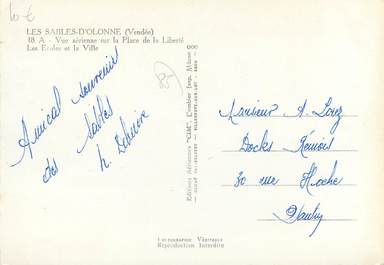 10 €
LES SABLES-D'OLONNE (Vendée)
18 A - Vue aérienne sur la Place de la Liberté
Les Ecoles et la Ville
Amical souvenir
des Sables
85
Editions Aériennes "CIM", Combier Imp. Mâcon
Monsieur A.
Docks Rémois
30 rue Hoche
Pantin
Reproduction Interdite